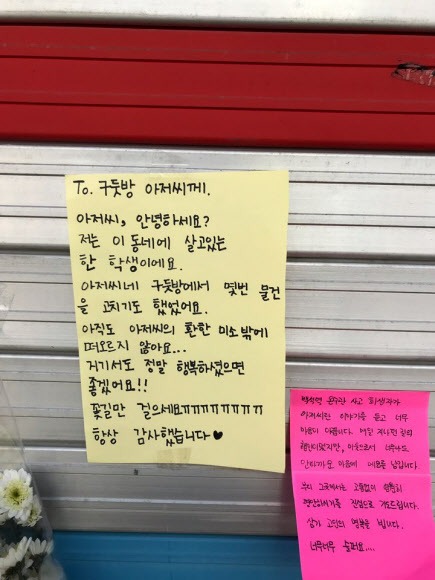 To. 구둣방 아저씨께.
아저씨, 안녕하세요?
저는 이 동네에 살고있는
한 학생이에요.
아저씨네 구둣방에서 몇번 물건
을 고치기도 했었어요.
아직도 아저씨의 환한 미소 밖에
떠오르지 않아요...
거기서도 정말 행복하셨으면
좋겠어요!!
꽃길만 걸으세요ㅠㅠㅠㅠㅠㅠㅠㅠ
항상 감사했습니다♥
음주운전 사고 피해자가
아저씨란 이야기를 듣고 너무
마음이 아픕니다. 매일 지나던 길의
안타까운 마음에 메모를 남깁니다.
고통없이 영원히
평안하시기를 진심으로 기도드립니다.
삼가 고인의 명복을 빕니다.
너무너무 슬퍼요....